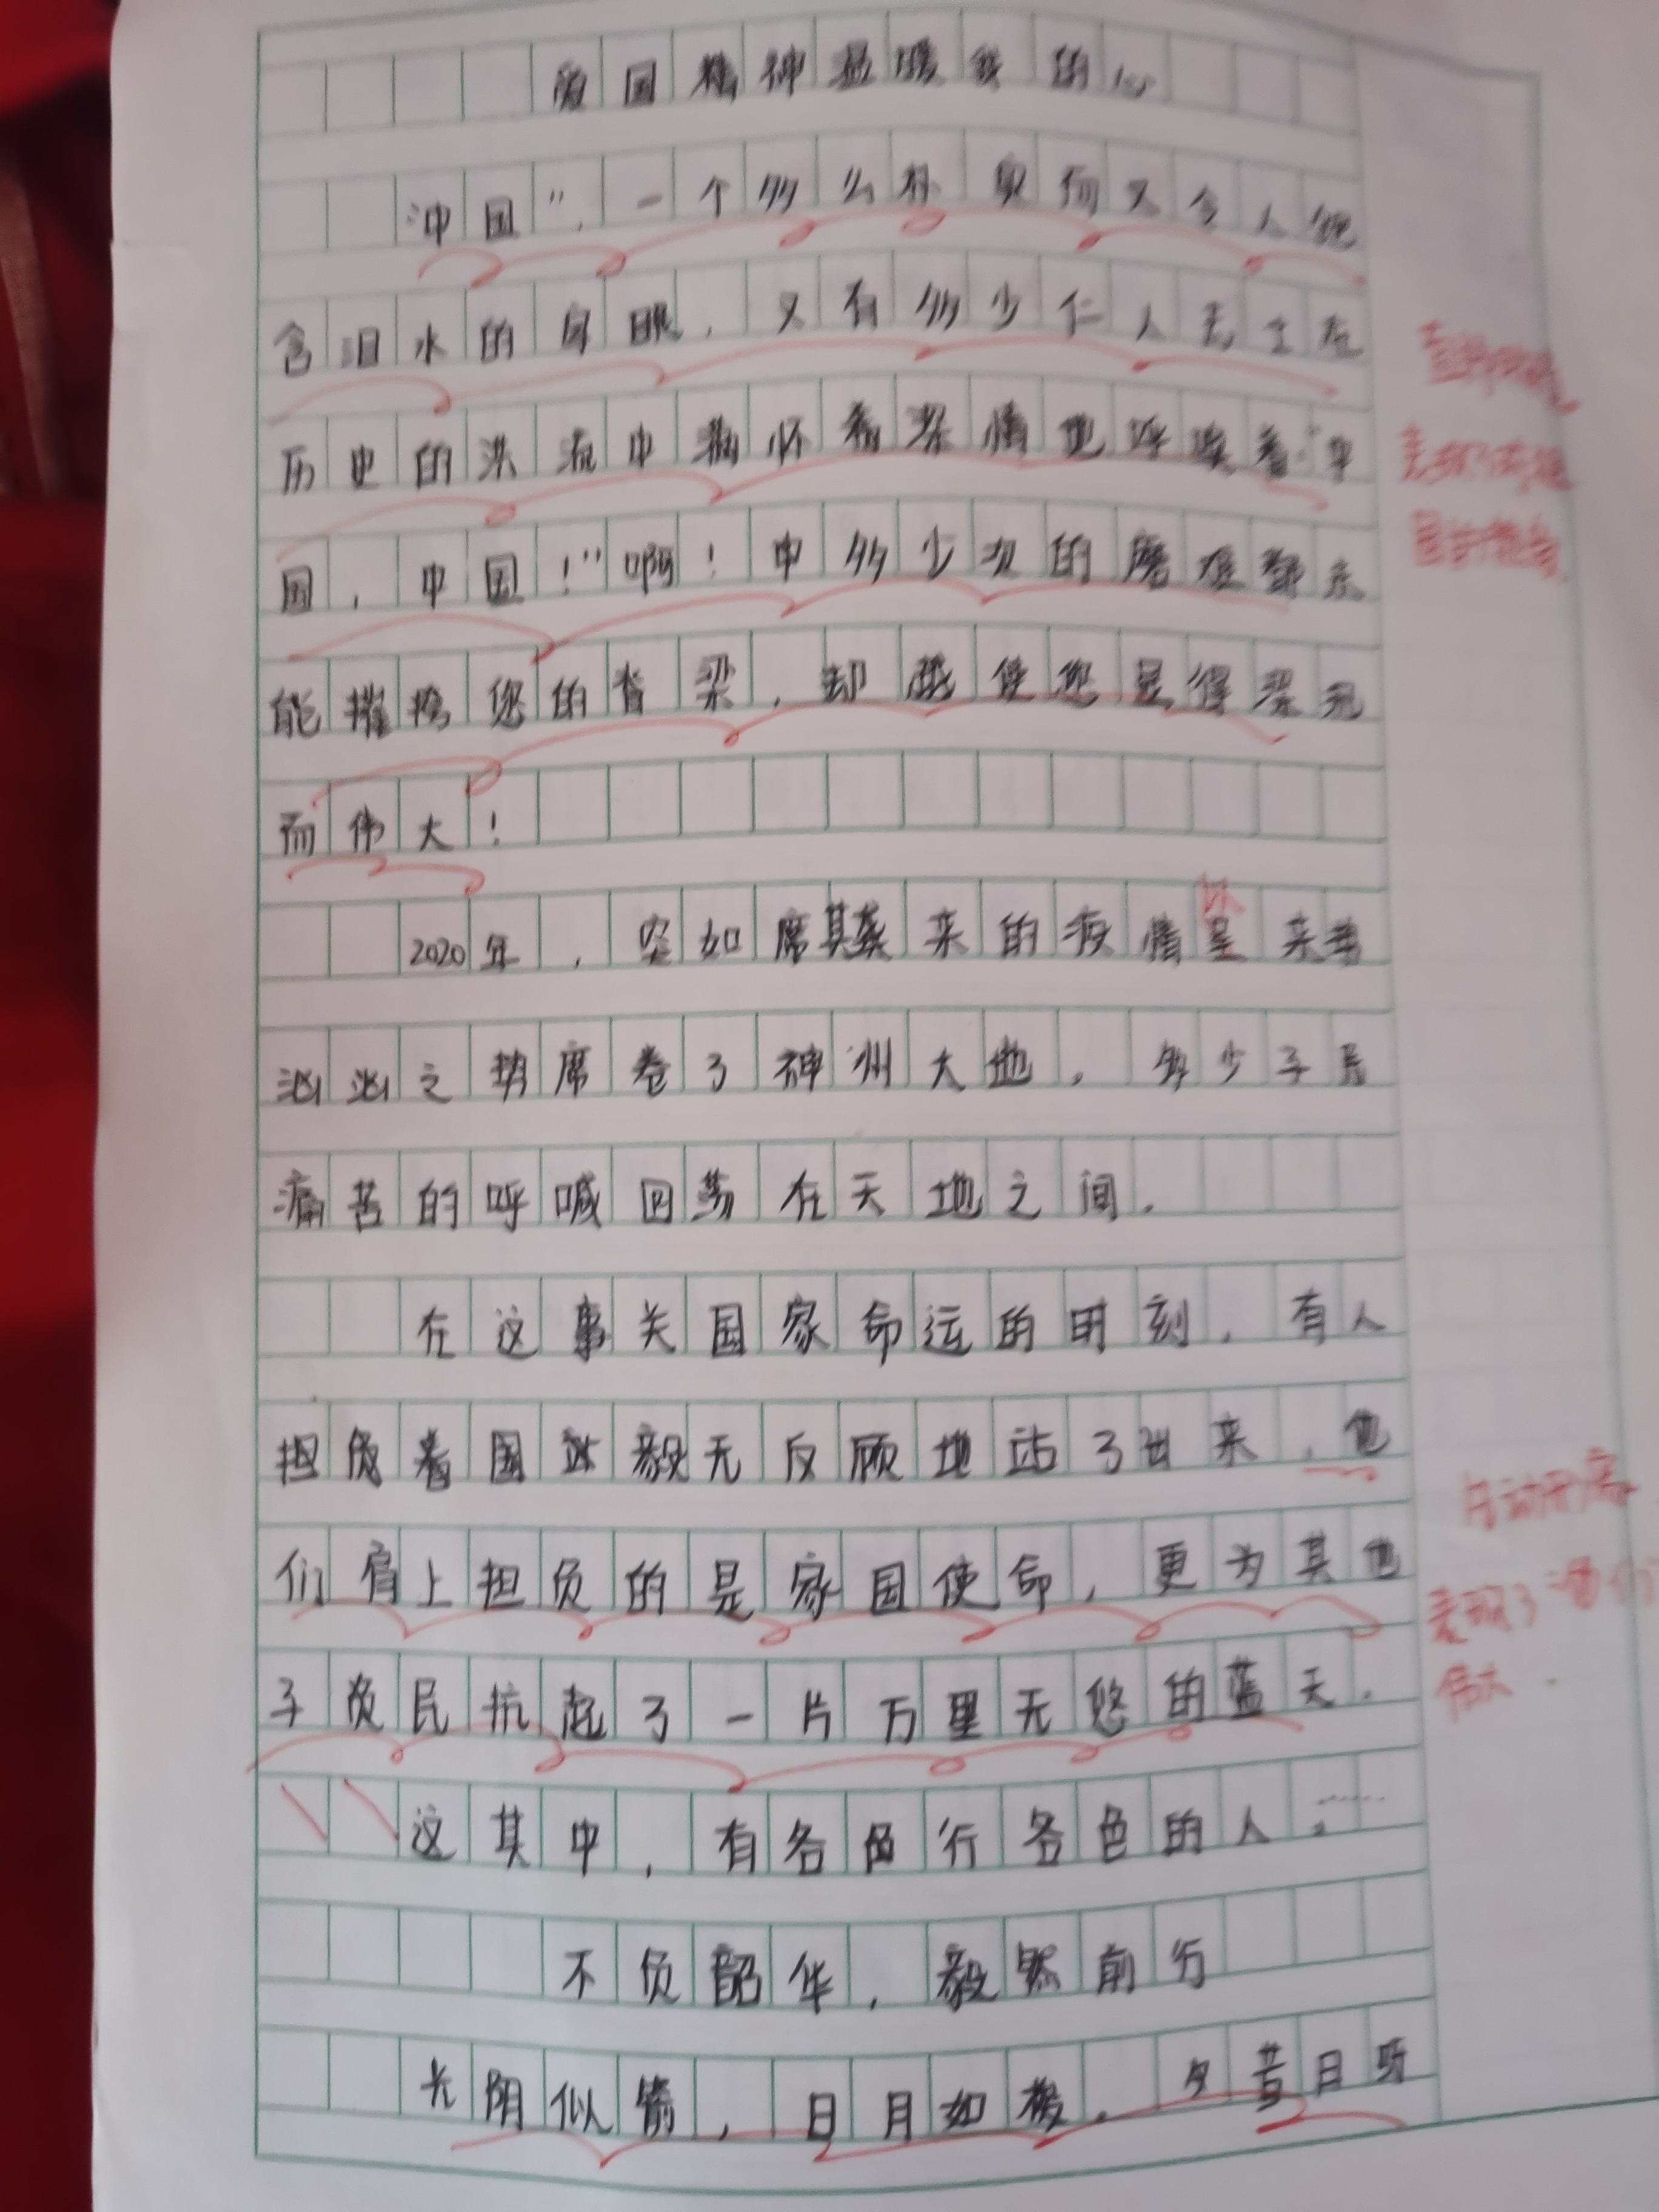 爱国精神温暖我的心
"中国",一个多么朴实而又令人饱
含泪水的字眼,又有多少仁人志士在
历史的洪流中满怀着深情地呼唤着:"中
国,中国!"啊!中多少次的磨难都未
能摧垮您的脊梁,却越使您显得深沉
而伟大!
2020年,突如席其袭来的疫情呈来势
以
汹汹之势席卷了神州大地,多少子民
痛苦的呼喊回荡在天地之间.
在这事关国家命运的时刻,有人
担负着国 毅无反顾地站了出来,他
们肩上担负的是家国使命,更为其他
子负民抗起了一片万里无悠的蓝天.
表现了
伟大.
这其中,有各色行各色的人.……
不负韶华,毅然前行
光阴似箭,日月如梭.夕昔日